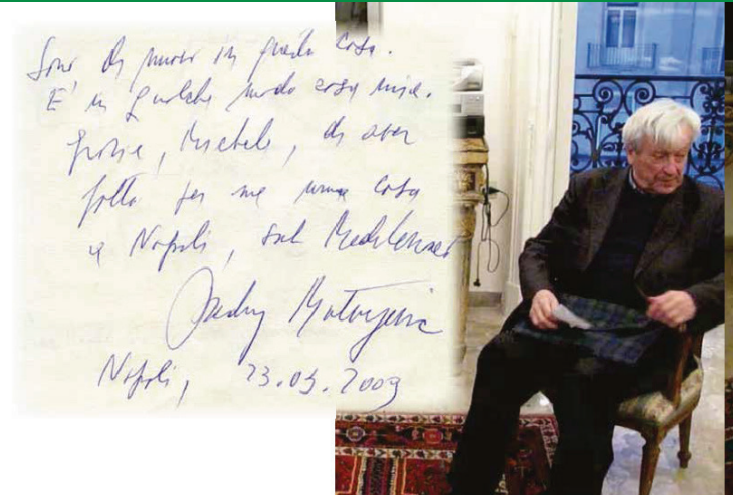 Sono di nuovo in questa casa.
E' in qualche modo casa mia.
Grazie, Michele, di aver
fatto per me una casa
a Napoli, sul Mediterraneo
Predrag Matvejević
Napoli, 23.05.2009